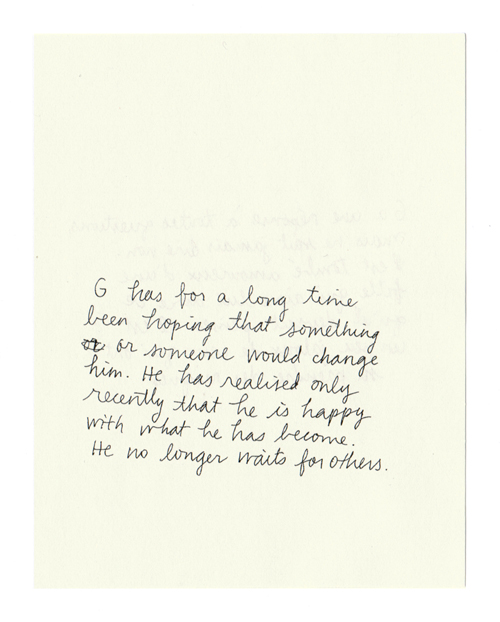 G has for a long time
been hoping that something
or or someone would change
him. He has realised only
recently that he is happy
with what he has become.
He no longer waits for others.